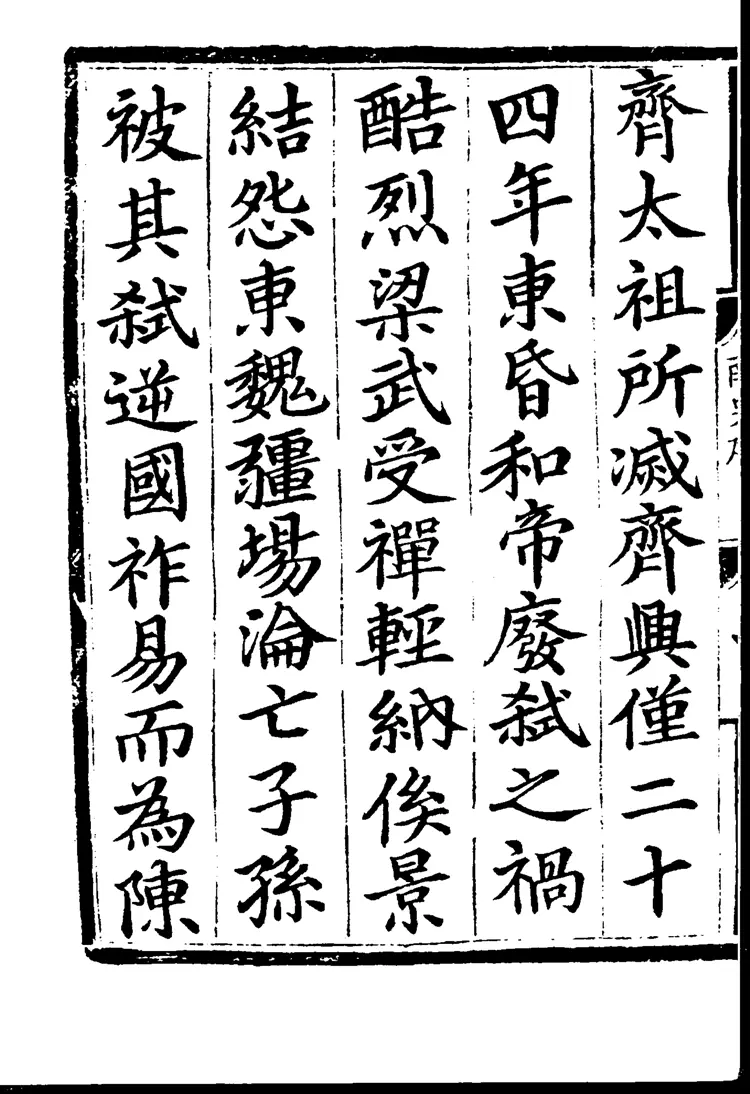 齊太祖所滅齊興僅二十
四年東昏和帝廢弑之禍
酷烈梁武受禪輕納侯景
結怨東魏疆場淪亡子孫
被其弑逆國祚易而為陳